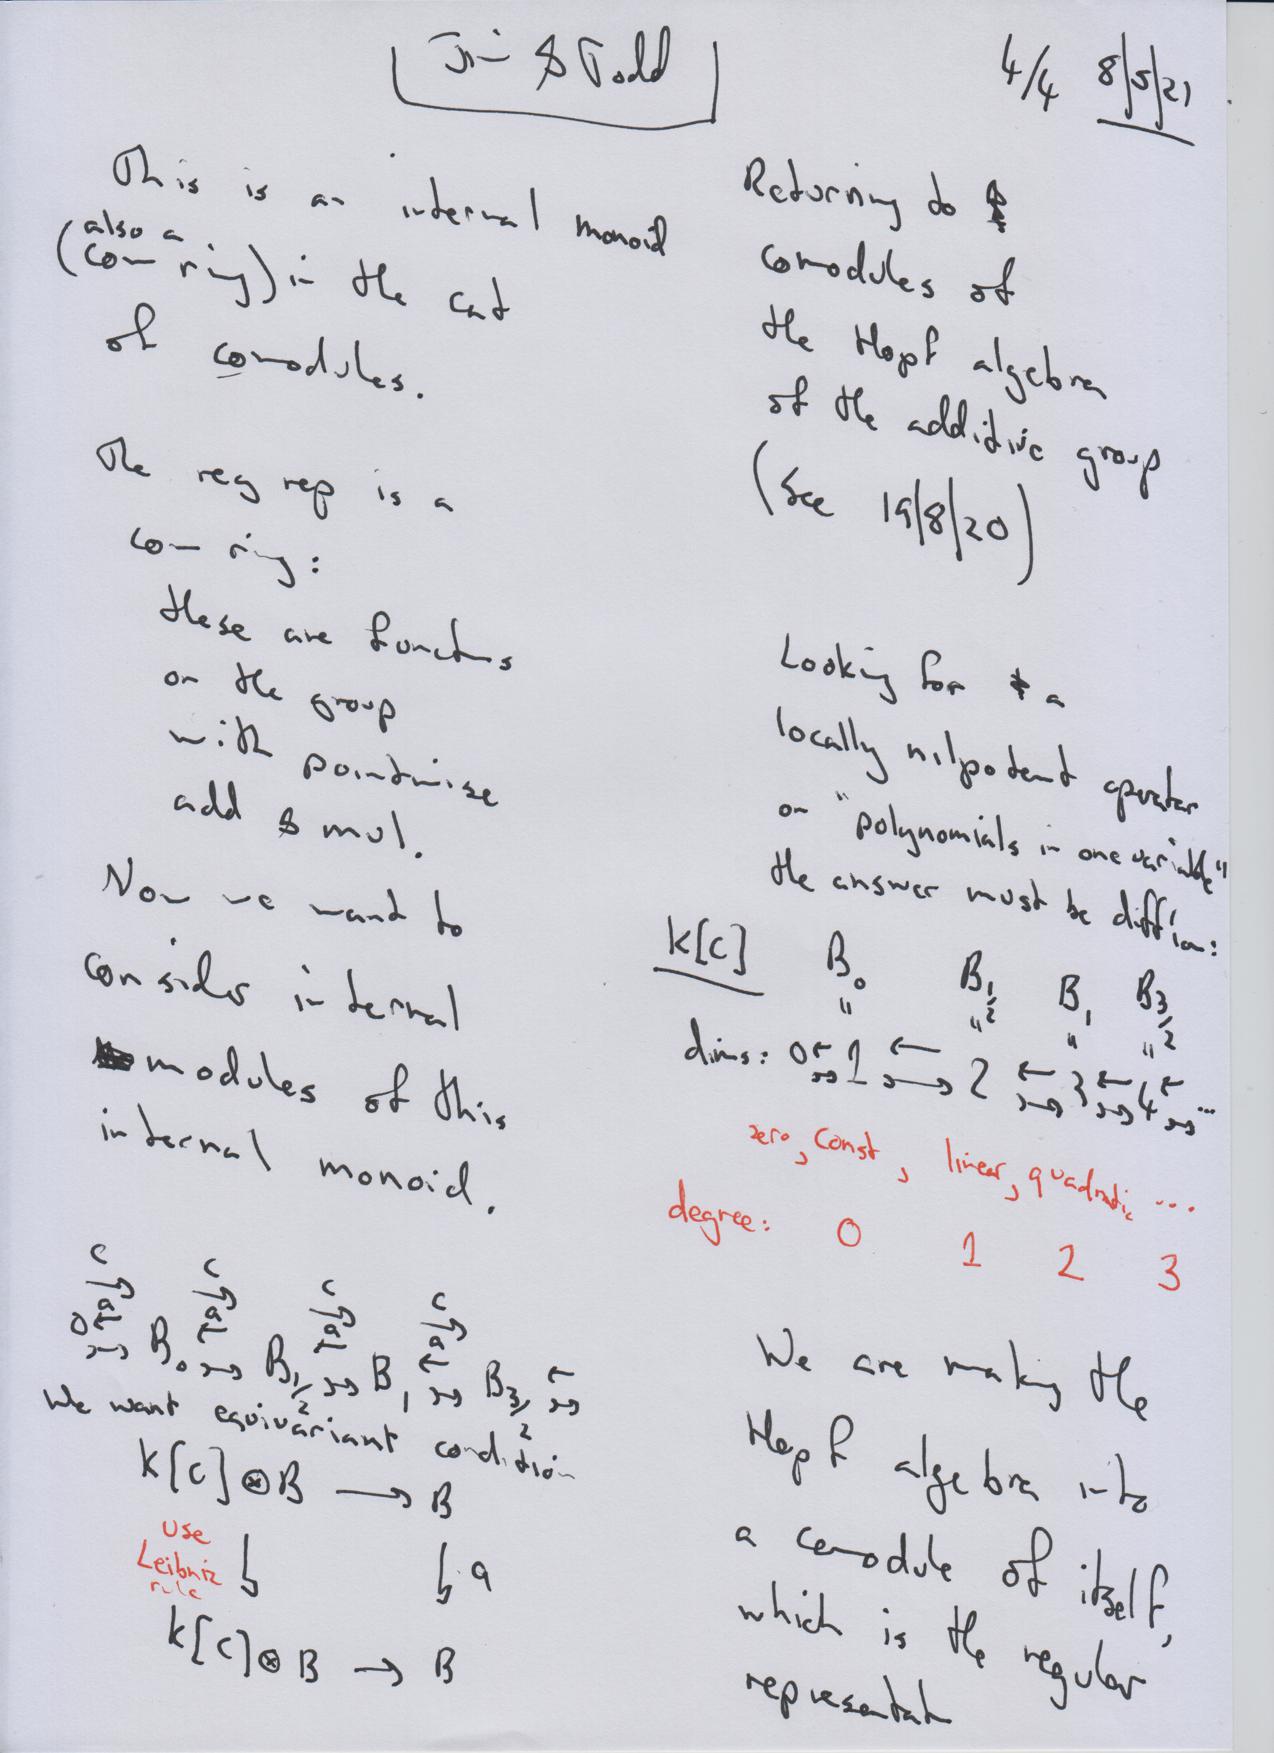 Jim & Todd
4/4 8/5/21
This is an internal monoid
also a
(com ring) in the cat
of comodules.
The reg rep is a
com ring:
these are functns
on the group
with pointwise
add & mul.
Now we want to
consider internal
modules of this
internal monoid.
c c c c
a a a a
0 B₀ B₁/₂ B₁ B₃/₂
We want equivariant condition
k[c]⊗B → B
use
Leibniz
rule
a
k[c]⊗B → B
Returning to
comodules of
the Hopf algebra
of the additive group
(See 19/8/20)
Looking for a
locally nilpotent operator
on "polynomials in one variable"
the answer must be diff'ion:
k[c] B₀ B₁/₂ B₁ B₃/₂
" " " "
dims: 0 ← ↣ 1 ← ↣ 2 ← ↣ 3 ← ↣ 4 ← ↣ ...
zero, const, linear, quadratic ...
degree: 0 1 2 3
We are making the
Hopf algebra into
a comodule of itself,
which is the regular
representatn